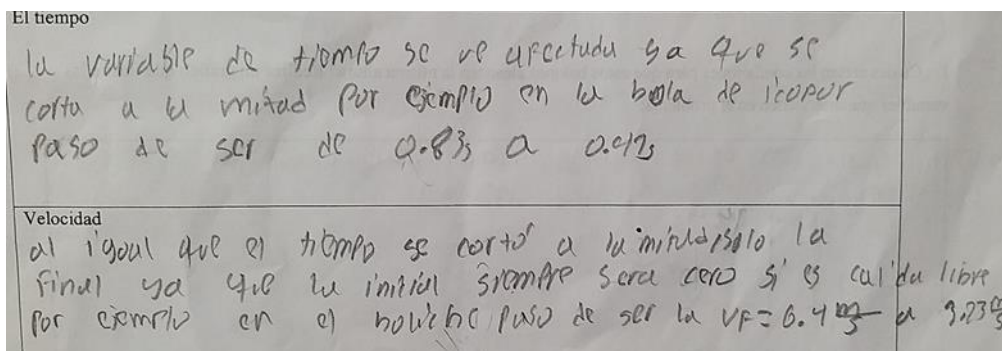 El tiempo
la variable de tiempo se ve afectada ya que se
corta a la mitad por ejemplo en la bola de icopor
paso de ser de 0.83s a 0.42s
Velocidad
al igual que el tiempo se cortó a la mitad, solo la
final ya que la inicial siempre sera cero si es caida libre
por ejemplo en el boliche paso de ser la VF = 6.4 m/s a 3.23